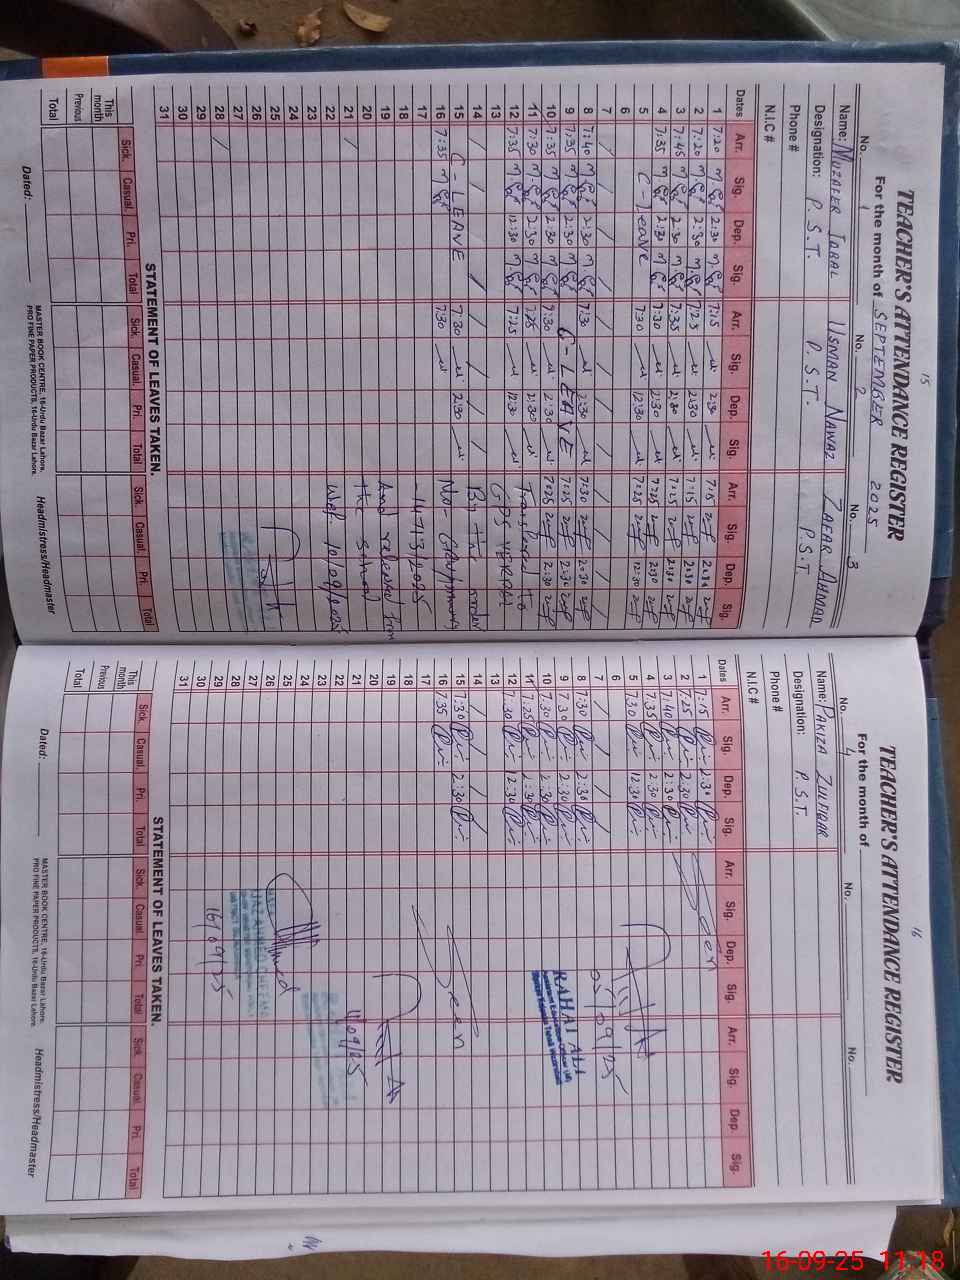 15
TEACHER'S ATTENDANCE REGISTER
For the month of SEPTEMBER 2025
No. 1 No. 2 No. 3
Name: MUZAFER IQBAL USMAN NAWAZ ZAFAR AHMAD
Designation: P.S.T. P.S.T. P.S.T
Phone #
N.I.C #
Dates Arr. Sig. Dep. Sig. Arr. Sig. Dep. Sig. Arr. Sig. Dep. Sig.
1 7:20 2:30 7:15 2:30 7:15 2:30
2 7:20 2:30 7:25 2:30 7:15 2:30
3 7:45 2:30 7:35 2:30 7:25 2:30
4 7:35 2:30 7:30 2:30 7:25 2:30
5 C-leave 7:30 12:30 7:25 12:30
6
7
8 7:40 2:30 7:30 2:30 7:30 2:30
9 7:35 2:30 C-LEAVE 7:25 2:30
10 7:35 2:30 7:30 2:30 7:25 2:30
11 7:30 2:30 7:25 2:30 Transfered to
12 7:35 12:30 7:25 12:30 GPS
13
14 By the order
15 C-LEAVE 7:30 2:30 No-
16 7:35 7:30
17 -1473/2025
18
19 And released from
20 the school
21
22 w.e.f. 10/09/2025
23
24
25
26
27
28
29
30
31
STATEMENT OF LEAVES TAKEN.
Sick. Casual. Pri. Total Sick. Casual. Pri. Total Sick. Casual. Pri. Total
This month
Previous
Total
MASTER BOOK CENTRE, 16-Urdu Bazar Lahore.
PRO FINE PAPER PRODUCTS, 16-Urdu Bazar Lahore.
Dated: Headmistress/Headmaster
16
TEACHER'S ATTENDANCE REGISTER
For the month of
No. 4 No. No.
Name: PAKIZA ZULFQAR
Designation: P.S.T.
Phone #
N.I.C #
Dates Arr. Sig. Dep. Sig. Arr. Sig. Dep. Sig. Arr. Sig. Dep. Sig.
1 7:15 2:30
2 7:25 2:30 Seen
3 7:40 2:30
4 7:35 2:30
5 7:30 12:30
6
7 05/09/25
8 7:30 2:30
9 7:30 2:30 RAHAT ALI
10 7:30 2:30
11 7:25 2:30
12 7:30 12:30
13
14
15 7:30 2:30 Seen
16 7:35
17
18
19
20
21 11/09/25
22
23
24
25
26
27
28
29 16/09/25
30
31
STATEMENT OF LEAVES TAKEN.
Sick. Casual. Pri. Total Sick. Casual. Pri. Total Sick. Casual. Pri. Total
This month
Previous
Total
MASTER BOOK CENTRE, 16-Urdu Bazar Lahore.
PRO FINE PAPER PRODUCTS, 16-Urdu Bazar Lahore.
Dated: Headmistress/Headmaster
16-09-25 11:18